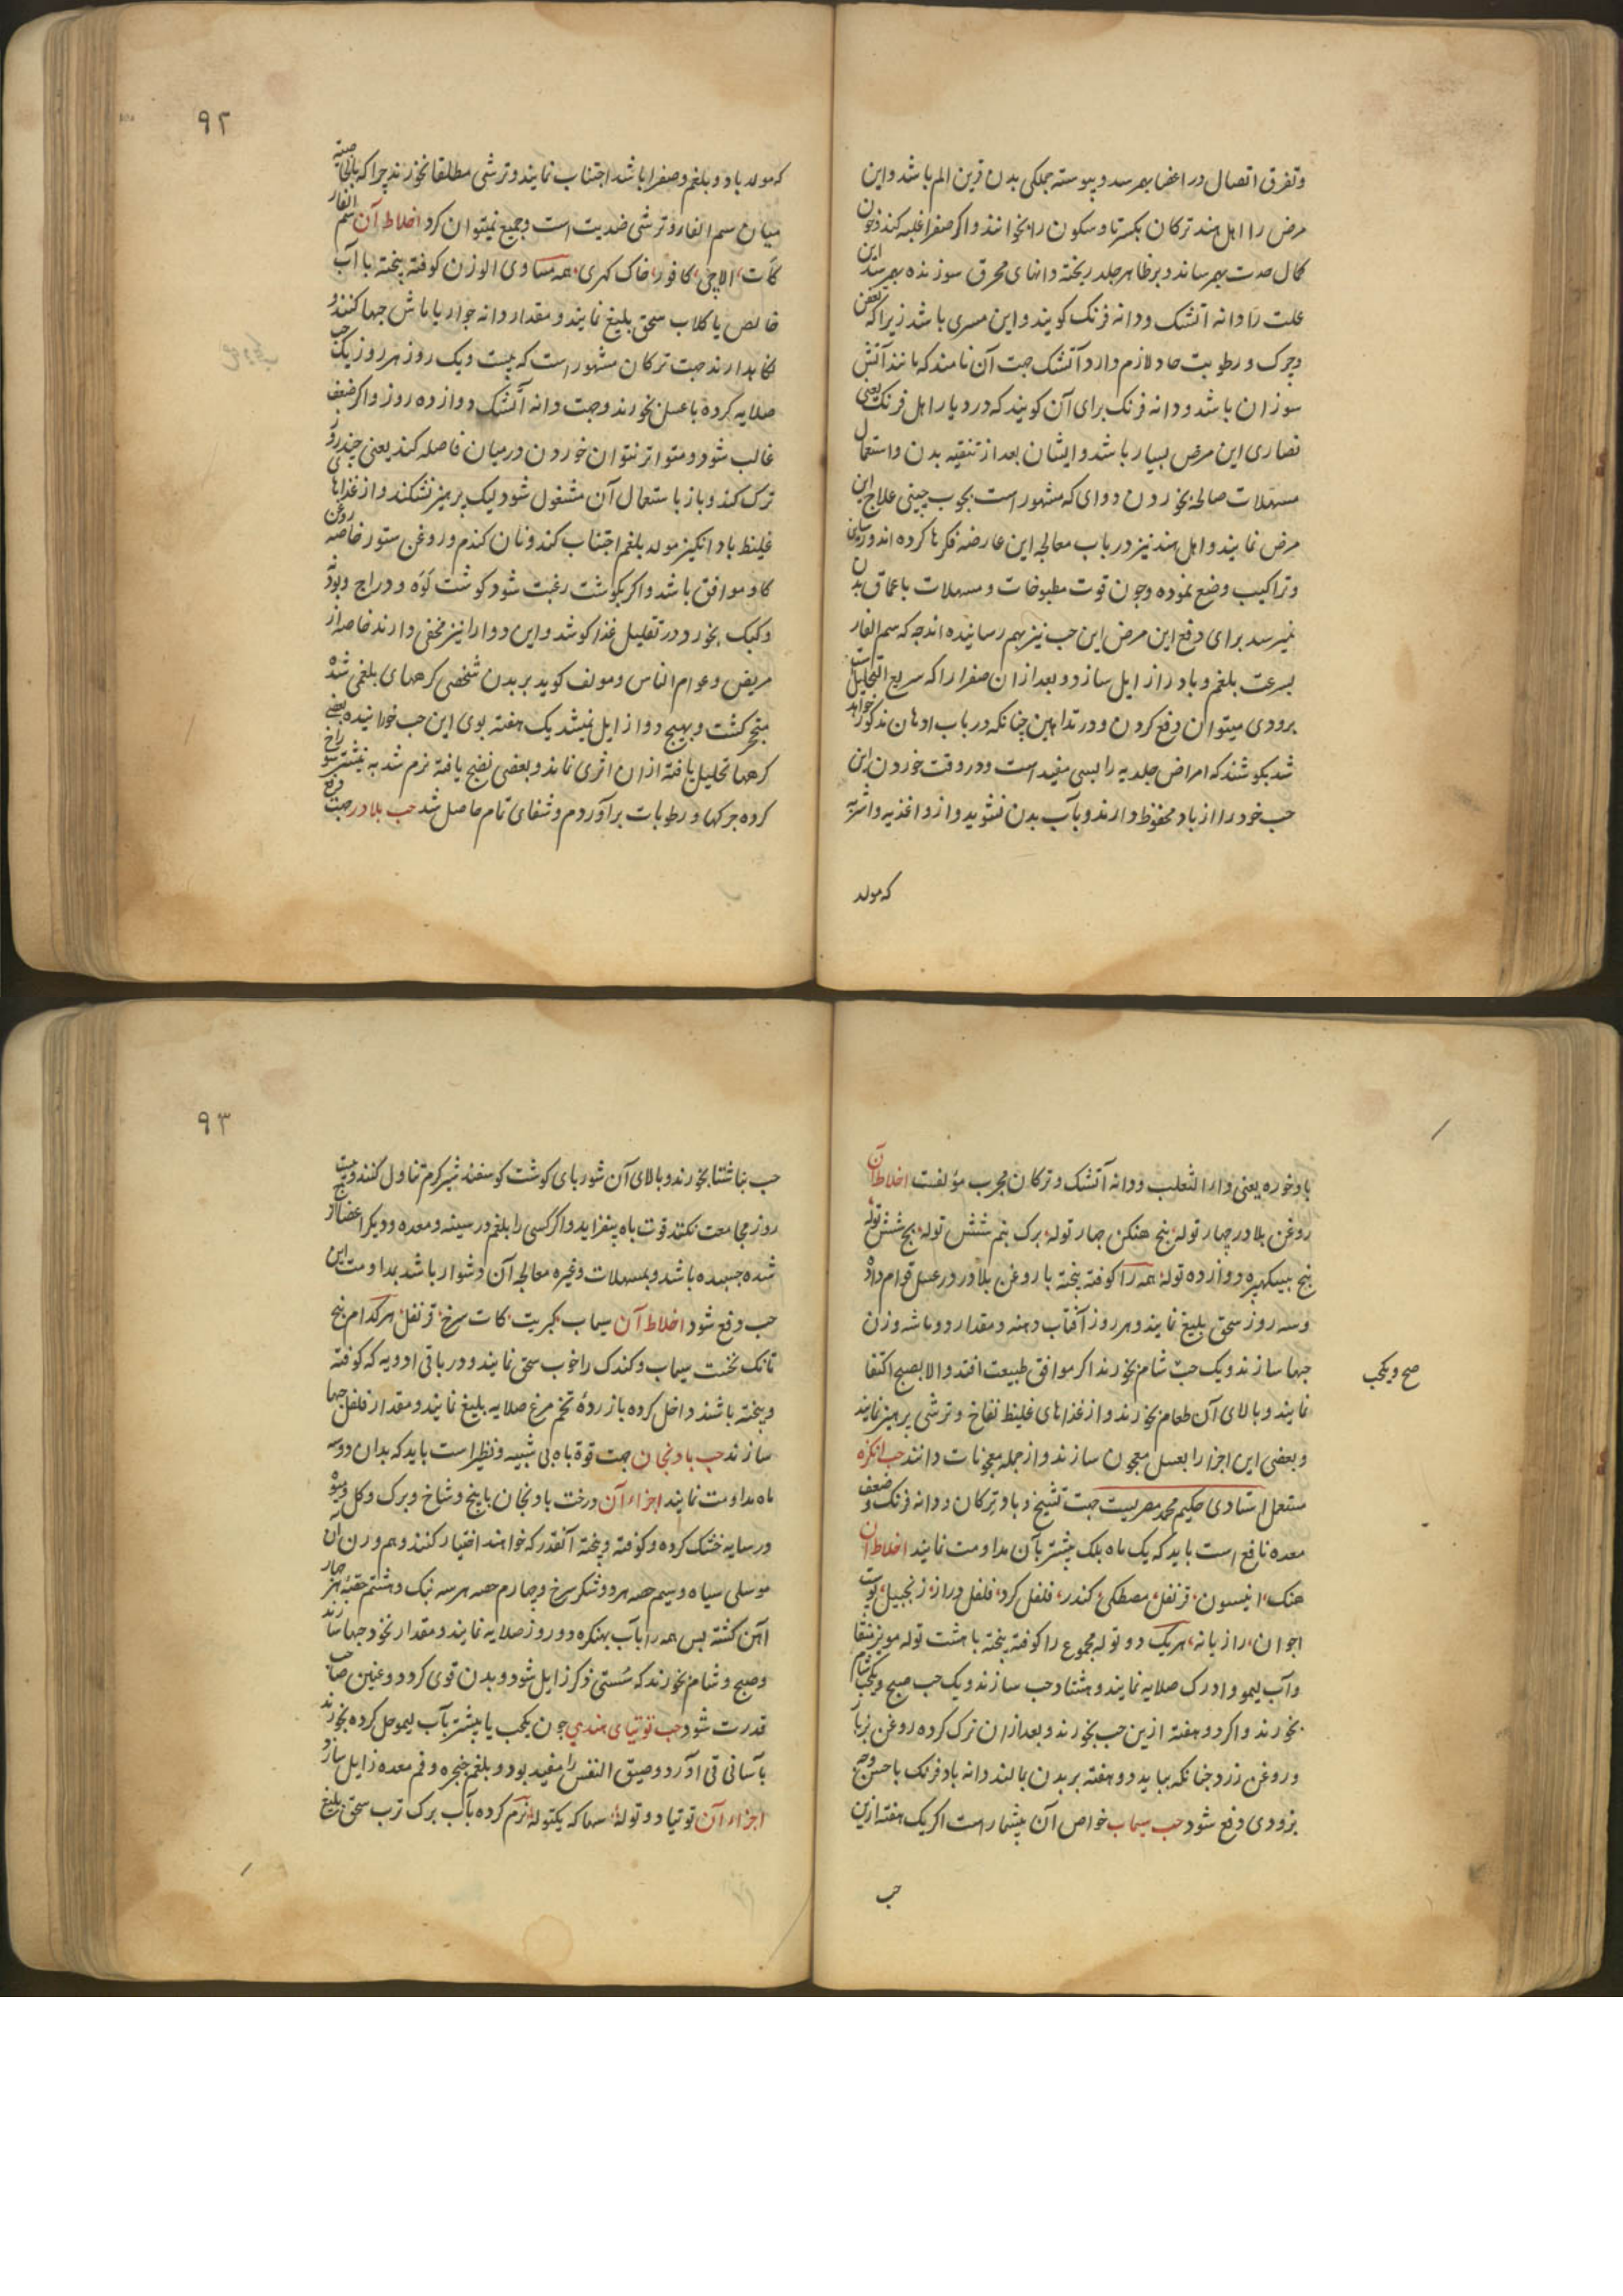 وتفرق اتصال در اعضا بهم رسد و پیوسته جملکی بدن قرین الم باشد و این
مرض را اهل هند ترکان بکسر تا و سکون را بخوانند و اکر صفرا غلبه کند و خون
کمال حدت بهم رساند و بر ظاهر جلد ریخته دانهای محرق سوزنده بهم رسد این
علت را دانه اتشک و دانه فرنک کویند و این مسری باشد زیرا که تعفن
و چرک و رطوبت حاد لازم دارد و آتشک جهت آن نامند که مانند آتش
سوزان باشد و دانه فرنک برای آن کویند که در دیار اهل فرنک یعنی
نصاری این مرض بسیار باشد و ایشان بعد از تنقیه بدن و استعمال
مسهلات صالحه بخوردن دوای که مشهور است بچوب چینی علاج این
مرض نمایند و اهل هند نیز در باب معالجه این عارضه فکرها کرده اند و رساین
و تراکیب وضع نموده و چون قوت مطبوخات و مسهلات باعماق بدن
نمیرسد برای دفع این مرض این حب نیز بهم رسانیده اند چه که سم الفار
بسرعت بلغم و باد را زایل سازد و بعد از ان صفرا را که سریع التحلیل است
بزودی میتوان دفع کردن و در تداهین چنانکه در باب ادهان مذکور خواهد
شد بکوشند که امراض جلدیه را بسی مفید است و در وقت خوردن این
حب خود را از باد محفوظ دارند و بآب بدن نشویند و از اغذیه و اشربه
که مولد
۹۲
که مولد باد و بلغم و صفرا باشد اجتناب نمایند و ترشی مطلقا نخورند چرا که بالخاصیته
میان سم الفار و ترشی ضدیت است و جمع نمیتوان کرد اخلاط آن سم الفار
کات، الاچی، کافور، خاک کهری، همه مساوی الوزن کوفته بیخته با آب
خالص یا کلاب سحق بلیغ نمایند و مقدار دانه جوار یا ماش جبها کنند و
نکاهدارند جهت ترکان مشهور است که بیست و یک روز هر روز یک حب
صلایه کرده با عسل بخورند و جهت دانه آتشک دوازده روز و اکر ضعف
غالب شود و متواتر نتوان خوردن در میان فاصله کند یعنی چند روز
ترک کند و باز باستعمال آن مشغول شود لیک پرهیز نشکند و از غذاهای
غلیظ باد انکیز مولد بلغم اجتناب کند و نان کندم و روغن ستور خاصه روغن
کاو موافق باشد و اکر بکوشت رغبت شود کوشت لوه و دراج و بودنه
و کبک بخورد و در تقلیل غذا کوشد و این دوا را نیز مخفی دارند خاصه از
مریض و عوام الناس و مولف کوید بر بدن شخصی کرههای بلغمی شده
متحجر کشت و بهیچ دوا زایل نمیشد یک هفته بوی این حب خورانیده بعضی
کرهها تحلیل یافته از ان اثری نماند و بعضی نضج یافته نرم شد به نیشتر سوراخ
کرده چرکها و رطوبات برآوردم و شفای تمام حاصل شد حب بلادر جهت قرع
بادخوره یعنی دار الثعلب و دانه آتشک و ترکان مجرب مؤلفت اخلاط آن
روغن بلادر چهار توله، بنج هنکن چهار توله، برک بنم شش توله، بج شش توله
بنج بسکهپره دوازده توله، همه را کوفته بیخته با روغن بلادر در عسل قوام داده
و سه روز سحق بلیغ نمایند و هر روز آفتاب دهند و مقدار دو ماشه وزن
جبها سازند و یک حب شام بخورند اکر موافق طبیعت افتد و الا بصبح اکتفا
صح و یکحب
نمایند و بالای آن طعام بخورند و از غذاهای غلیظ نفاخ و ترشی پرهیز نمایند
و بعضی این اجزا را بعسل معجون سازند و از جمله معجونات دانند حب انکزه
مستعمل استادی حکیم محمد مصریست جهت تشنج و باد و ترکان و دانه فرنک و ضعف
معده نافع است باید که یک ماه بلک بیشتر بآن مداومت نمایند اخلاط آن
هنک، انیسون، قرنفل، مصطکی، کندر، فلفل کرد، فلفل دراز، زنجبیل، پوست
اجوان، رازیانه، هریک دو توله مجموع را کوفته بیخته با هشت توله مویز منقا
و آب لیمو و ادرک صلایه نمایند و هشتاد حب سازند و یک حب صبح و یکحب شام
بخورند و اکر دو هفته ازین حب بخورند و بعد از ان ترک کرده روغن زیبا
و روغن زرد چنانکه بباید دو هفته بر بدن بمالند دانه باد فرنک باحسن وجهی
بزودی دفع شود حب سیماب خواص آن بیشمار است اکر یک هفته ازین
حب
۹۳
حب بناشتا بخورند و بالای آن شوربای کوشت کوسفند شیرکرم تناول کنند و بیست
روز مجامعت نکنند قوت باه بیفزاید و اکر کسی را بلغم در سینه و معده و دیکر اعضا
شده چسبیده باشد و بمسهلات و غیره معالجه آن دشوار باشد بمداومت این
حب دفع شود اخلاط آن سیماب، کبریت، کات سرخ، قرنفل، هر کدام پنج
تانک نخست سیماب و کندک را خوب سحق نمایند و در باقی ادویه که کوفته
و بیخته باشند داخل کرده با زردهٔ تخم مرغ صلایه بلیغ نمایند و مقدار فلفل جبها
سازند حب بادنجان جهت قوة باه بی شبیه و نظیر است باید که بدان دو سه
ماه مداومت نمایند اجزاء آن درخت بادنجان با بیخ و شاخ و برک و کل و میوه
در سایه خشک کرده و کوفته و بیخته آنقدر که خواهند اختیار کنند و هم وزن آن
موسلی سیاه و سیم حصه هر دو شکر سرخ و چهارم حصه هر سه بنک و هشتم حصه هر چهار
آهن کشته پس همه را بآب بهنکره دو روز صلایه نمایند و مقدار نخود جبها سازند
و صبح و شام بخورند که سستی ذکر زایل شود و بدن قوی کردد و عنین صاحب
قدرت شود حب توتیای هندی چون یکحب یا بیشتر بآب لیمو حل کرده بخورند
بآسانی قی آورد و ضیق النفس را مفید بود و بلغم حنجره و فم معده زایل سازد
اجزاء آن توتیا دو توله، سهاکه یکتوله، نرم کرده بآب برک ترب سحق بلیغ